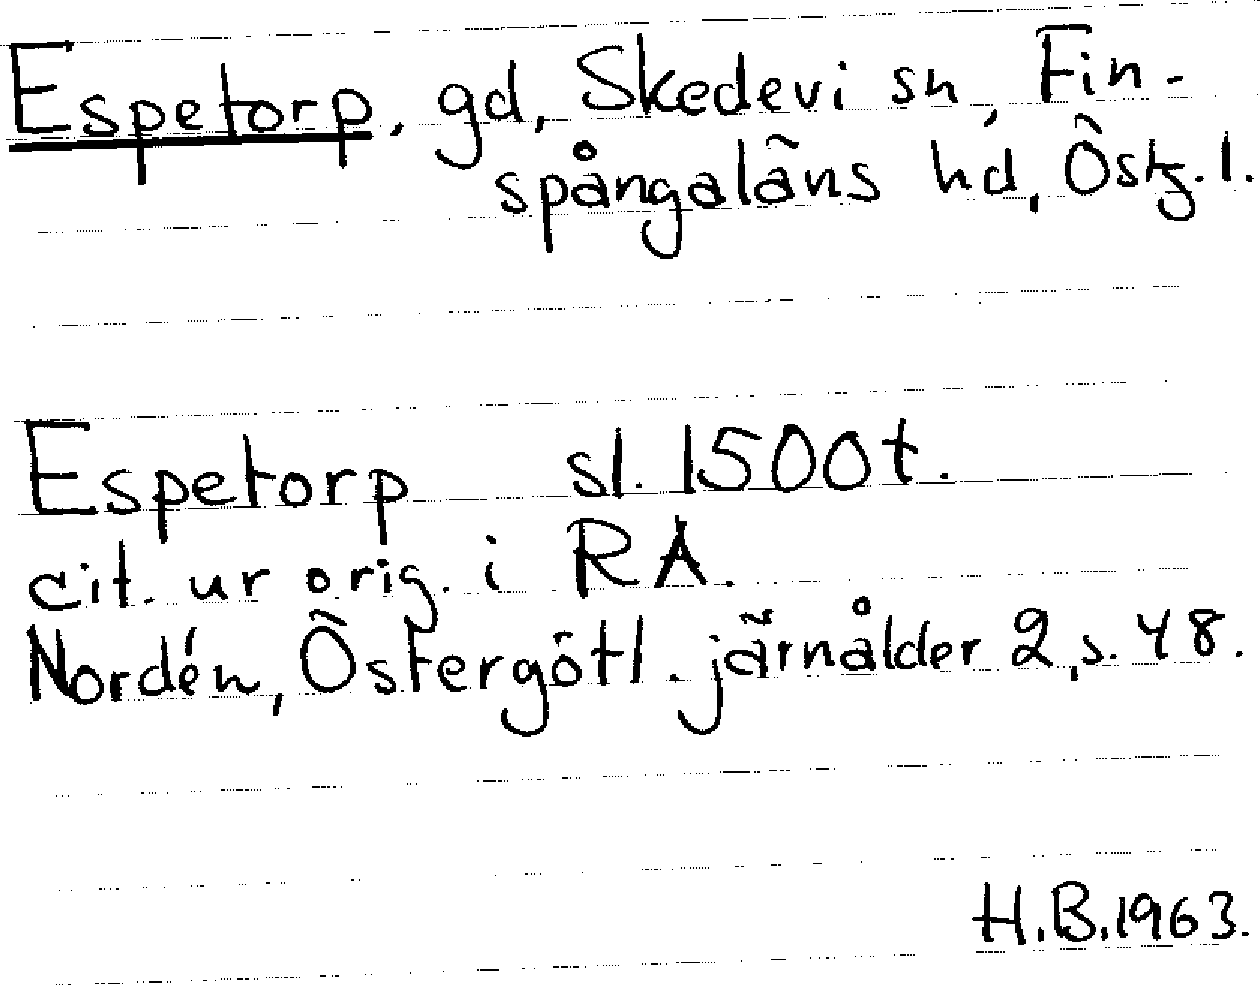 Espetorp, gd, Skedevi sn, Fin-
spångaläns hd, Östg. l.
Espetorp sl. 1500t.
cit. ur orig. i RA.
Nordén, Östergötl. järnålder 2, s. 48.
H.B. 1963.